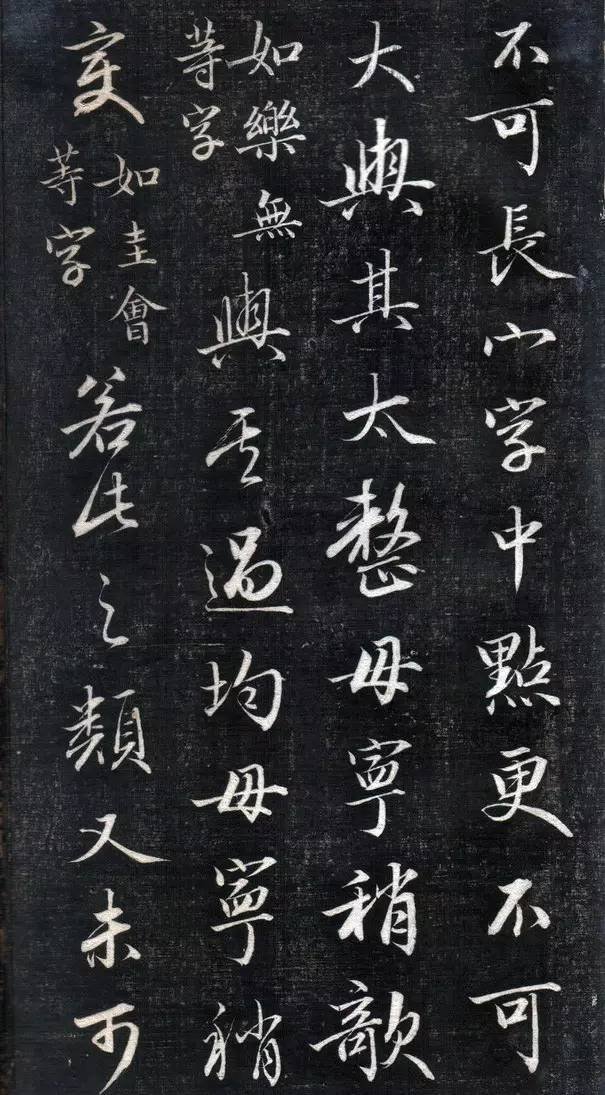 不可長心字中點更不可
大與其太整毋寧稍欹
如樂無
等字
與其過均毋寧稍
変
如圭會
等字
若此之類又未可